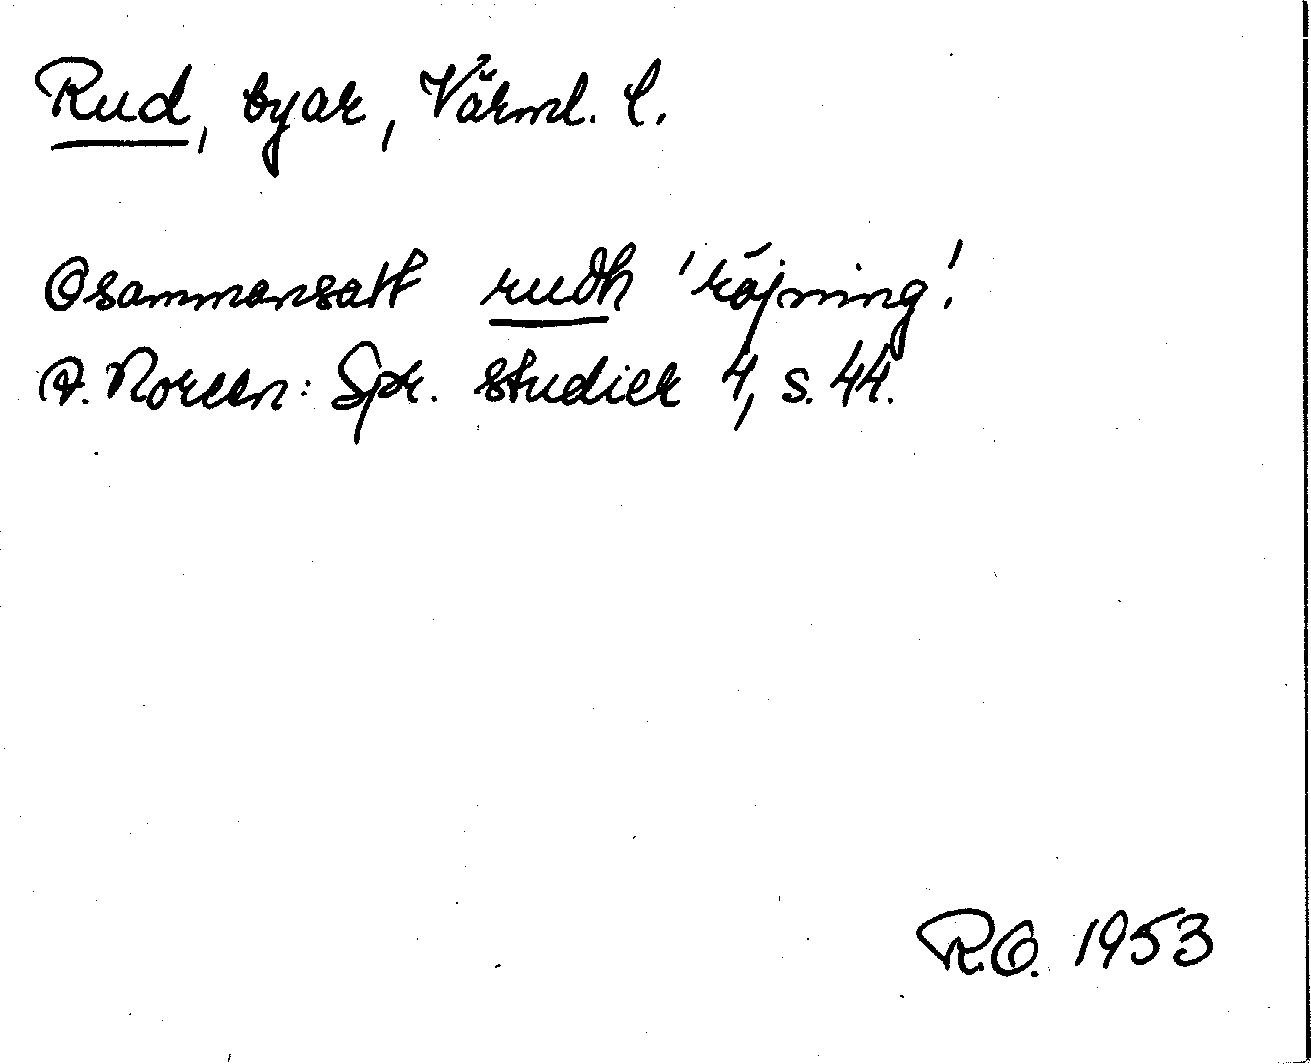 Rud, byar, Värml. l.
Osammansatt rudh 'röjning'.
A. Noreen: Spr. studier 4, s. 44.
R.O. 1953